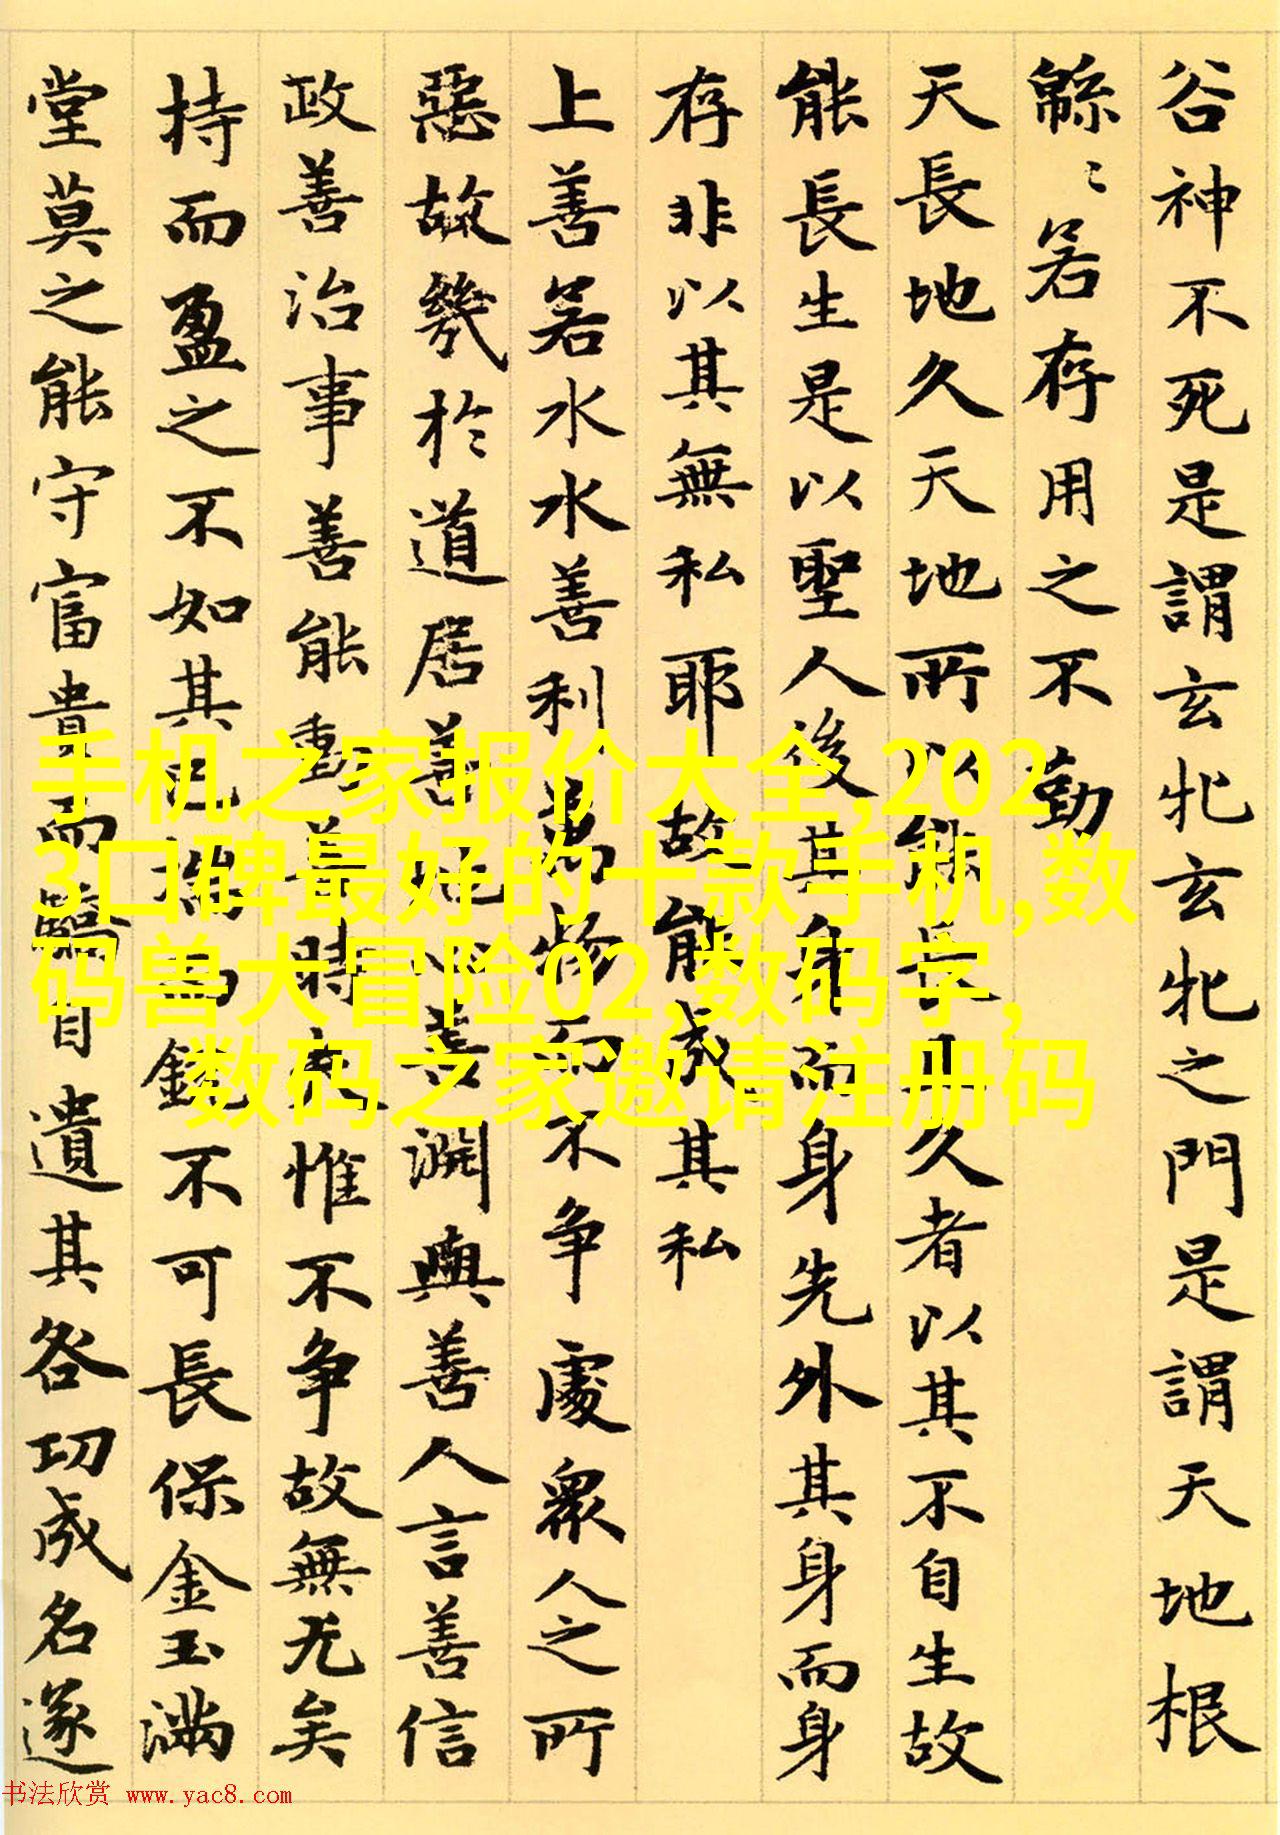 谷神不死是謂玄牝玄牝之門是謂天地根
緜〻若存用之不勤
天長地久天地所以能長且久者以其不自生故
能長生是以聖人後其身而身先外其身而身
存非以其無私耶故能成其私
上善若水水善利萬物而不争處衆人之所
惡故幾於道居善地心善淵與善人言善信
政善治事善能動善時夫惟不争故無尤矣
持而盈之不如其已揣而銳不可長保金玉滿
堂莫之能守富貴而驕自遺其咎功成名遂
手机之家报价大全,202
3口碑最好的十款手机,数
码兽大冒险02,数码字,
数码之家邀请注册码
书法欣赏 www.yac8.com